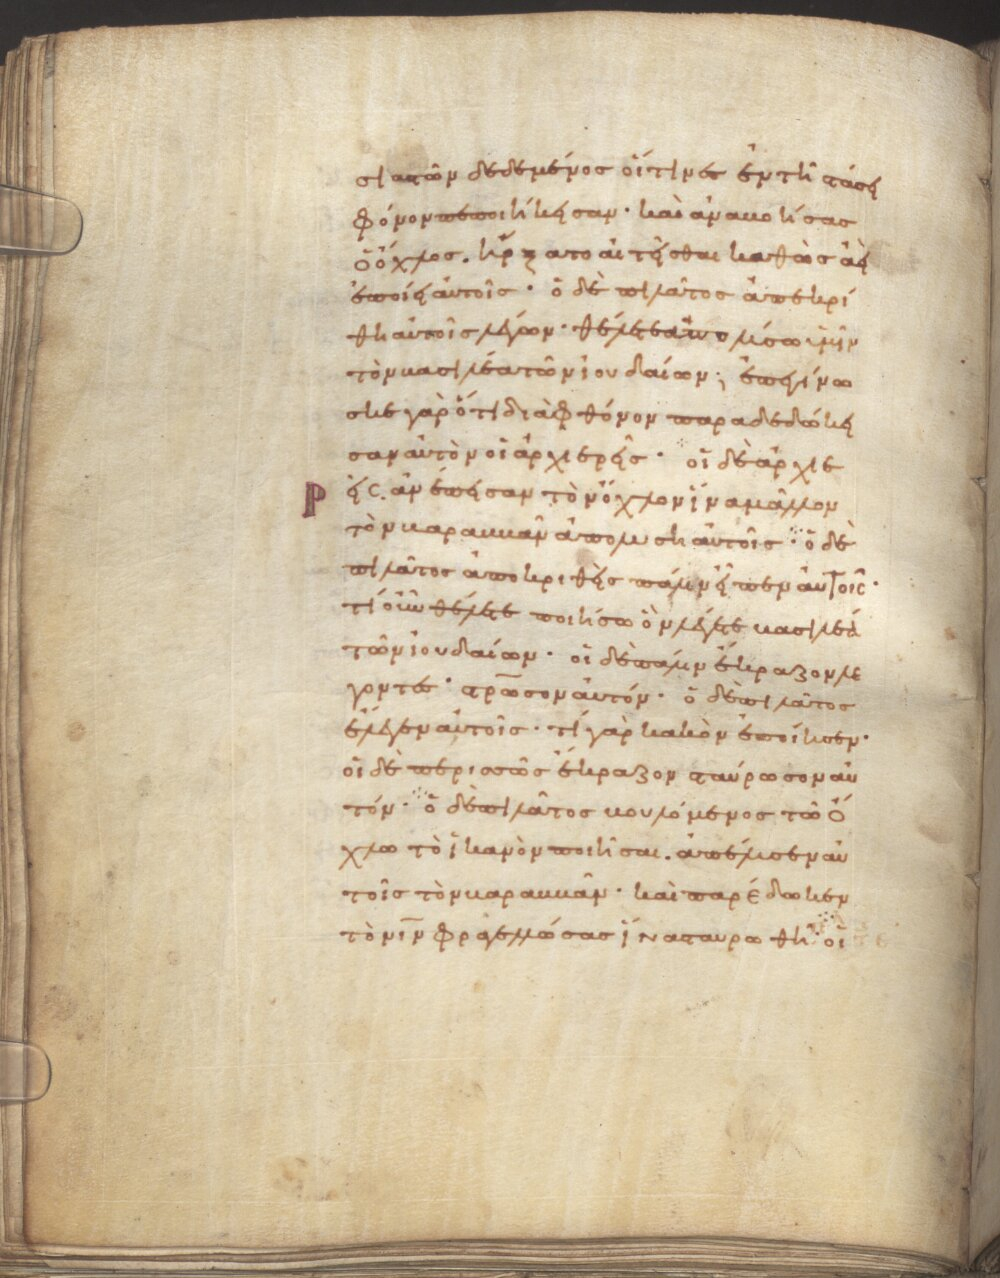 σιαστῶν δεδεμένος οἵτινες ἐν τῆ στάσει
φόνον πεποιήκεισαν· καὶ ἀναβοήσας
ὁ ὄχλος. ἤρξατο αἰτεῖσθαι καθὼς ἀεὶ
ἐποίει αὐτοῖς· ὁ δὲ πιλᾶτος ἀπεκρί
θη αὐτοῖς λέγων· θέλετε ἀπολύσω ὑμῖν
τὸν βασιλέα τῶν ἰουδαίων; ἐπεγίνω
σκε γὰρ ὅτι διὰ φθόνον παραδεδώκει
σαν αὐτὸν οἱ ἀρχιερεῖς· οἱ δὲ ἀρχιε
ρ εῖς. ἀνέπεισαν τὸν ὄχλον ἵνα μᾶλλον
τὸν βαραββᾶν ἀπολυση αὐτοῖς· ὁ δὲ
πιλᾶτος ἀποκριθεὶς πάλιν εἶπεν αυτοῖς·
τί οὖν θέλετε ποιήσω ὃν λέγετε βασιλέα
τῶν ἰουδαίων· οἱ δὲ πάλιν ἔκραζον λέ
γοντες· στρωσον αὐτόν· ὁ δὲ πιλᾶτος
ἔλεγεν αὐτοῖς· τί γὰρ κακὸν ἐποίησεν·
οἱ δὲ περισσῶς ἔκραζον σταύρωσον αὐ
τόν· ὁ δὲ πιλᾶτος βουλόμενος τῶ ὄ
χλω τὸ ἱκανὸν ποιῆσαι. ἀπέλυσεν αὐ
τοῖς τὸν βαραββᾶν· καὶ παρέδωκεν
τὸν ιν φραγελλώσας ἵνα σταυρωθῆ· οἱ